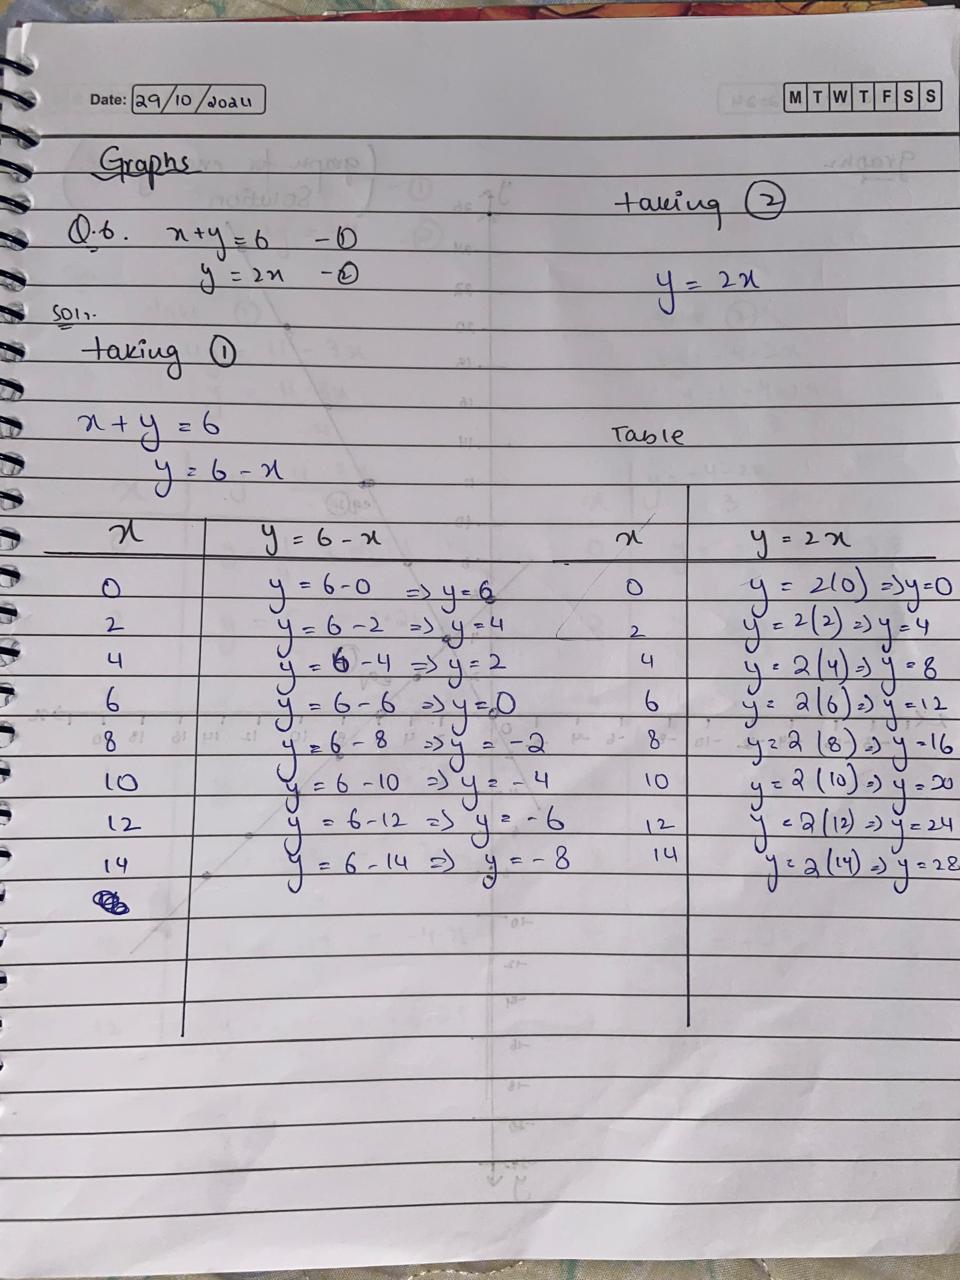 Date: 29/10/2024
M T W T F S S
Graphs
Q.6. x+y=6 -①
y = 2x -②
Soln.
taking ①
x + y = 6
y = 6 - x
taking ②
y = 2x
Table
x y = 6 - x
0 y = 6-0 => y=6
2 y = 6-2 => y=4
4 y = 6-4 => y=2
6 y = 6-6 => y=0
8 y = 6-8 => y = -2
10 y = 6-10 => y = -4
12 y = 6-12 => y = -6
14 y = 6-14 => y = -8
x y = 2x
0 y = 2(0) => y=0
2 y = 2(2) => y=4
4 y = 2(4) => y=8
6 y = 2(6) => y=12
8 y = 2(8) => y=16
10 y = 2(10) => y=20
12 y = 2(12) => y=24
14 y = 2(14) => y=28